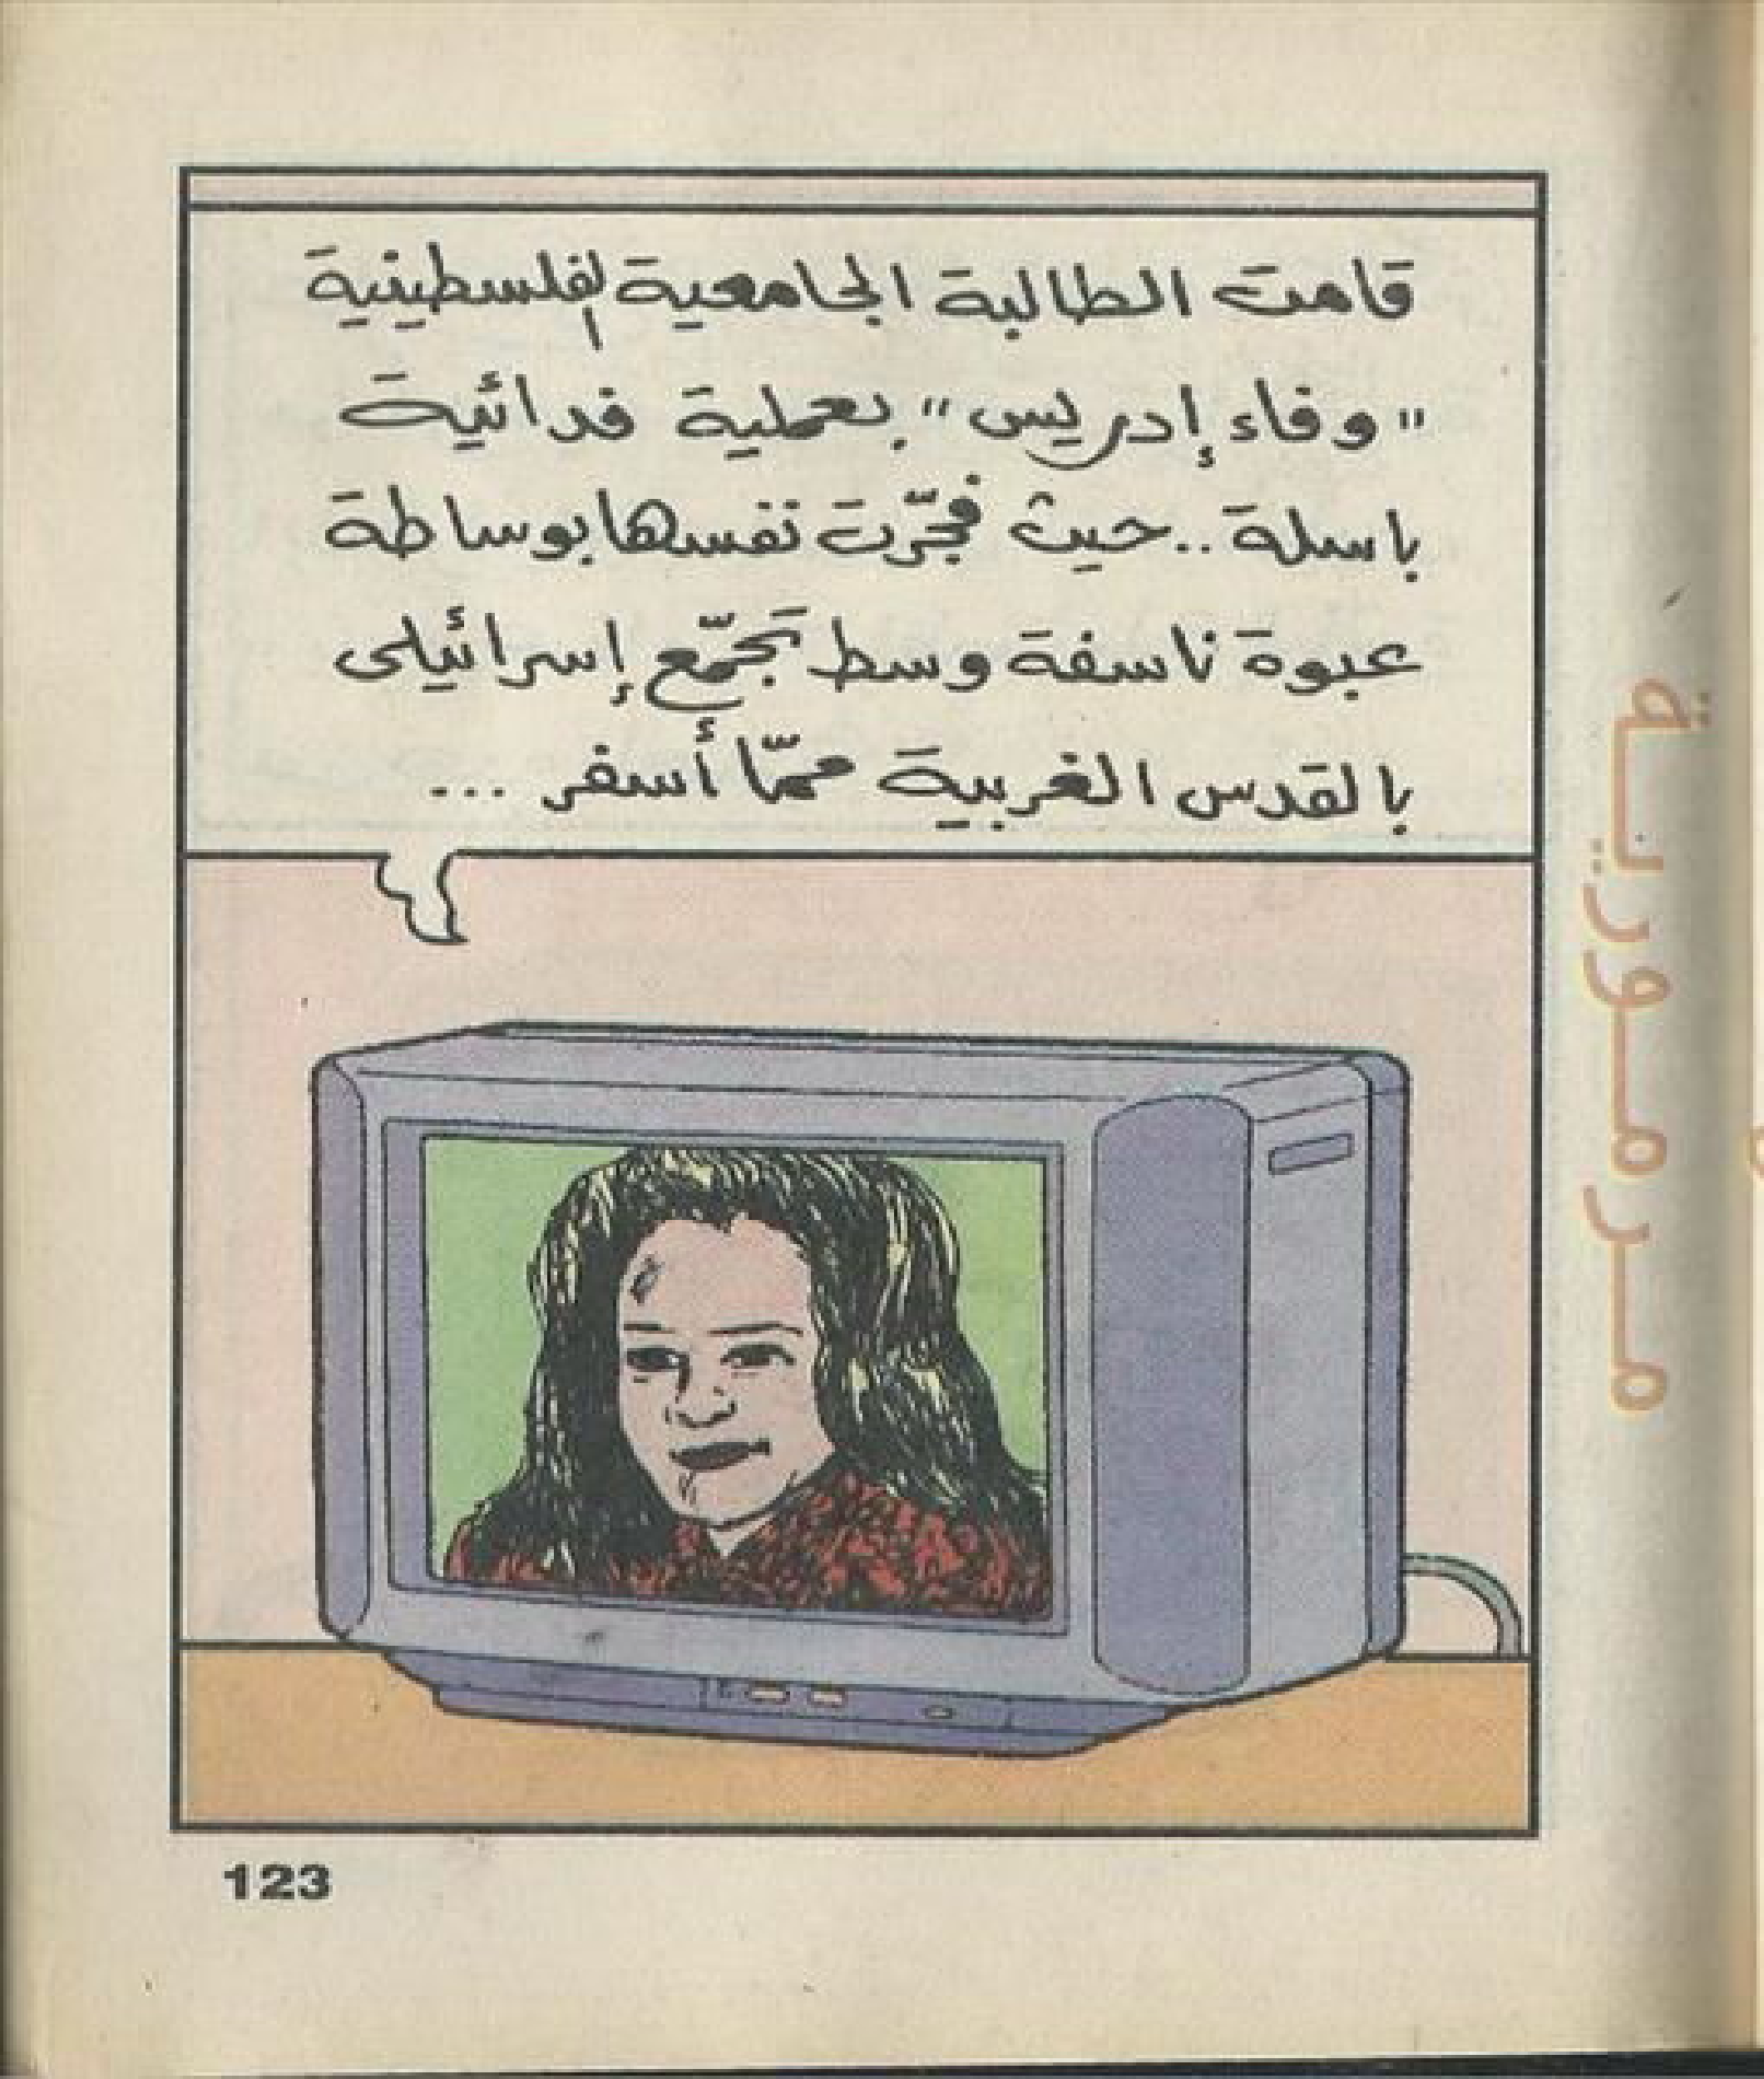 قامت الطالبة الجامعية الفلسطينية
"وفاء إدريس" بعملية فدائية
باسلة .. حيث فجّرت نفسها بوساطة
عبوة ناسفة وسط تجمّع إسرائيلى
بالقدس الغربية ممّا أسفر ...
123
مرمورية